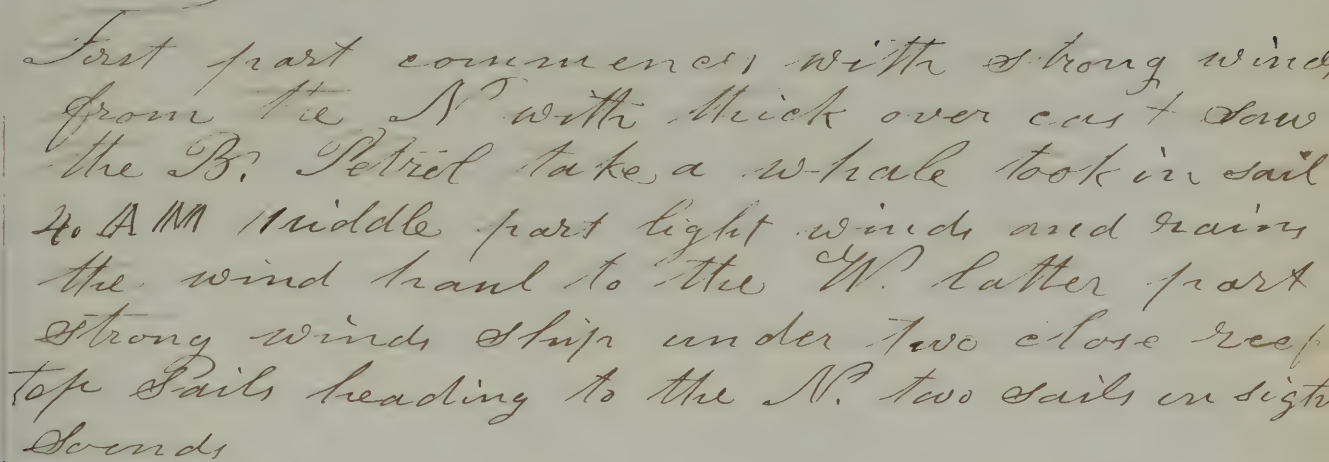 First part commences with strong winds
from the N with thick over cast saw
the B. Petrel take a whale took in sail
4. AM Middle part light winds and rains
the wind haul to the W. latter part
strong winds ship under two close reef
top Sails heading to the N. two sails in sight